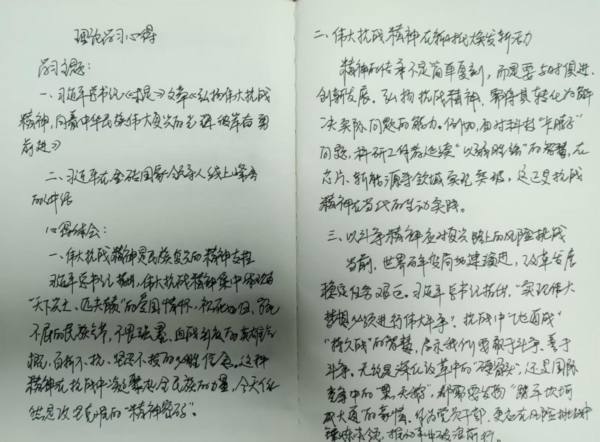 理论学习心得
学习主题:
一、习近平总书记《求是》文章《弘扬伟大抗战
精神,向着中华民族伟大复兴的光辉彼岸奋勇
前进》
二、习近平在金砖国家领导人线上峰会
的讲话
心得体会:
一、伟大抗战精神是民族复兴的精神
习近平总书记指出,伟大抗战精神集中体现为
"天下兴亡、匹夫有责"的爱国情怀,视死如归、宁死
不屈的民族气节,不畏强暴、血战到底的英雄气
概,百折不挠、坚忍不拔的必胜信念。这种
精神在抗战中凝聚起全民族的力量,今天依
然是攻坚克难的"精神密码"。
二、伟大抗战精神在新时代焕发新活力
精神的传承不是简单复刻,而是要与时俱进、
创新发展。弘扬抗战精神,要将其转化为解
决实际问题的能力。例如,面对科技"卡脖子"
问题,科研工作者延续"以弱胜强"的智慧,在
芯片、新能源等领域实现突破,这正是抗战
精神在当代的生动实践。
三、以斗争精神应对复兴路上的风险挑战
当前,世界百年变局加速演进,改革发展
稳定任务艰巨。习近平总书记指出,"实现伟大
梦想必须进行伟大斗争"。抗战中"地道战"
"持久战"的智慧,启示我们要敢于斗争、善于
斗争,无论是深化改革中的"硬骨头",还是国际
竞争中的"黑天鹅",都需要发扬"踏平坎坷
成大道"的豪情。作为党员干部,更应在风险挑战中